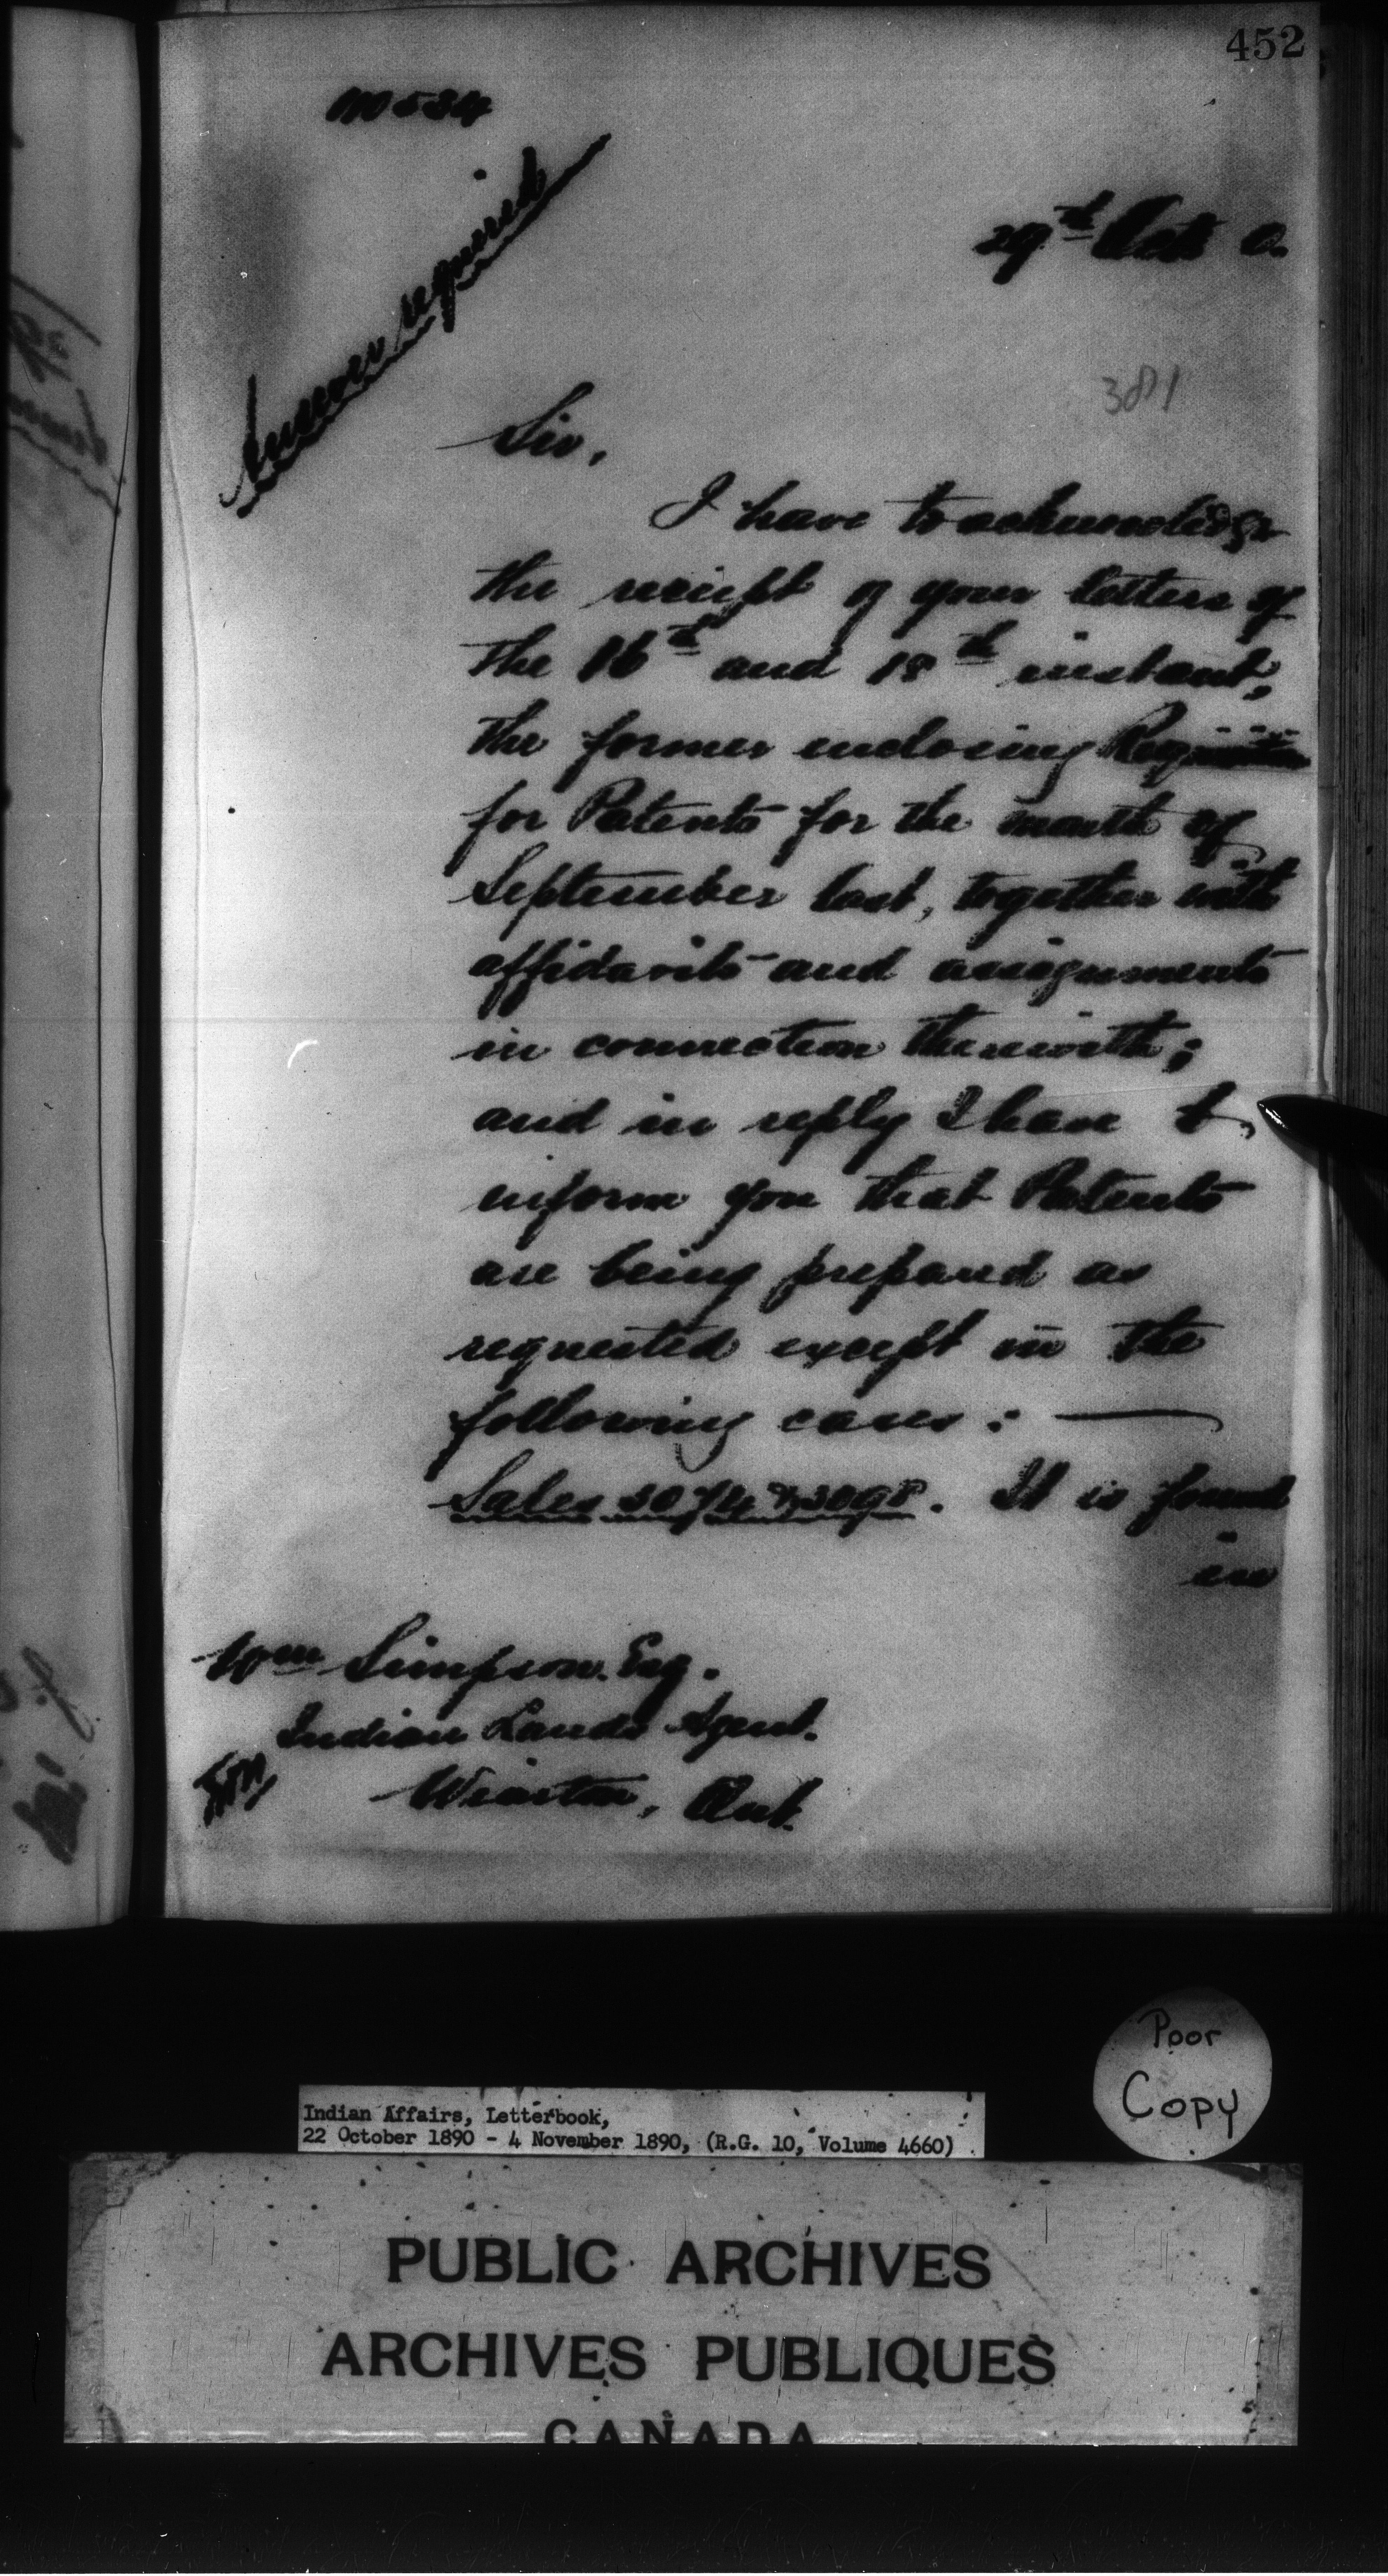 452
29th Oct 0.
Answer required
381
Sir,
I have to acknowledge
the receipt of your letters of
the 16th and 18th instant,
the former enclosing
for Patents for the month of
September last, together with
affidavits and assignments
in connection therewith;
and in reply I have to
inform you that Patents
are being prepared as
requested except in the
following cases: —
Sales It is found
in
Wm Simpson. Esq.
Indian Lands Agent.
Wiarton, Ont.
Poor
Copy
Indian Affairs, Letterbook,
22 October 1890 - 4 November 1890, (R.G. 10, Volume 4660)
PUBLIC ARCHIVES
ARCHIVES PUBLIQUES
CANADA